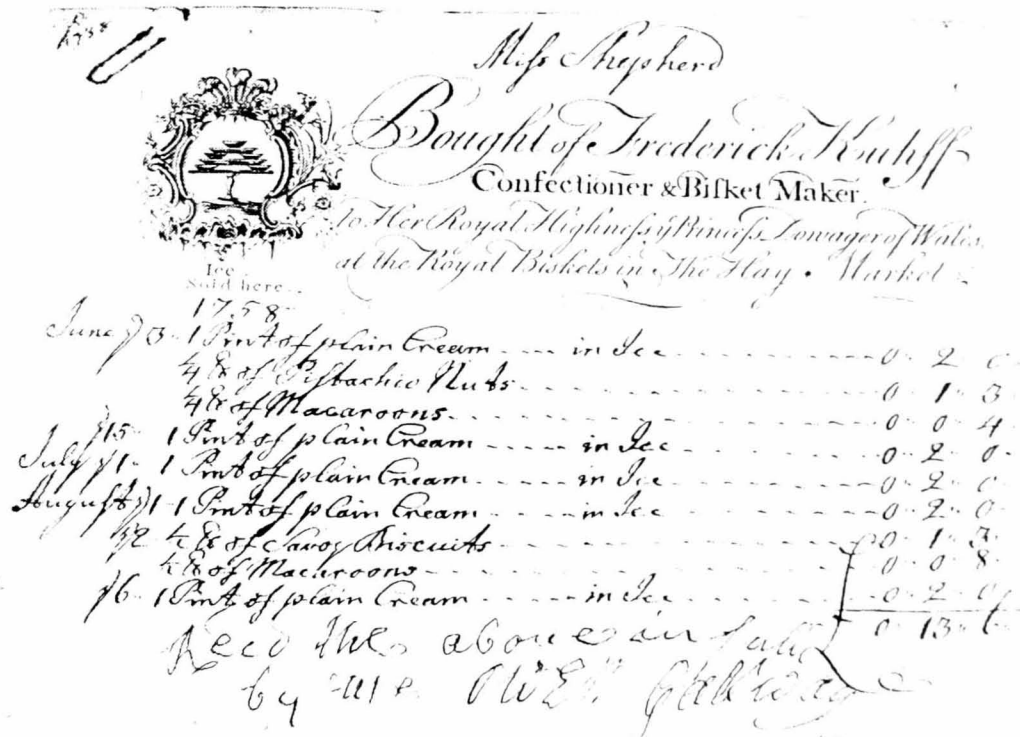 1758
Miſs Shepherd
Bought of Frederick Kuhff
Confectioner & Biſket Maker.
to Her Royal Highneſs yͤ Princeſs Dowager of Wales
at the Royal Biskets in The Hay-Market
Ice
Sold here.
1758
June yͤ 3 1 Pint of plain Cream in Ice 0 2 0
¼ ℔ of Pistachio Nuts 0 1 3
¼ ℔ of Macaroons 0 0 4
yͤ 15 1 Pint of plain Cream in Ice 0 2 0
July yͤ 1 1 Pint of plain Cream in Ice 0 2 0
August yͤ 1 1 Pint of plain Cream in Ice 0 2 0
yͤ 2 ℔ of Savoy Biscuits 0 1 3
℔ of Macaroons 0 0 8
yͤ 6 1 Pint of plain Cream in Ice 0 2 0
0 13 6
Recd the above in full
by me